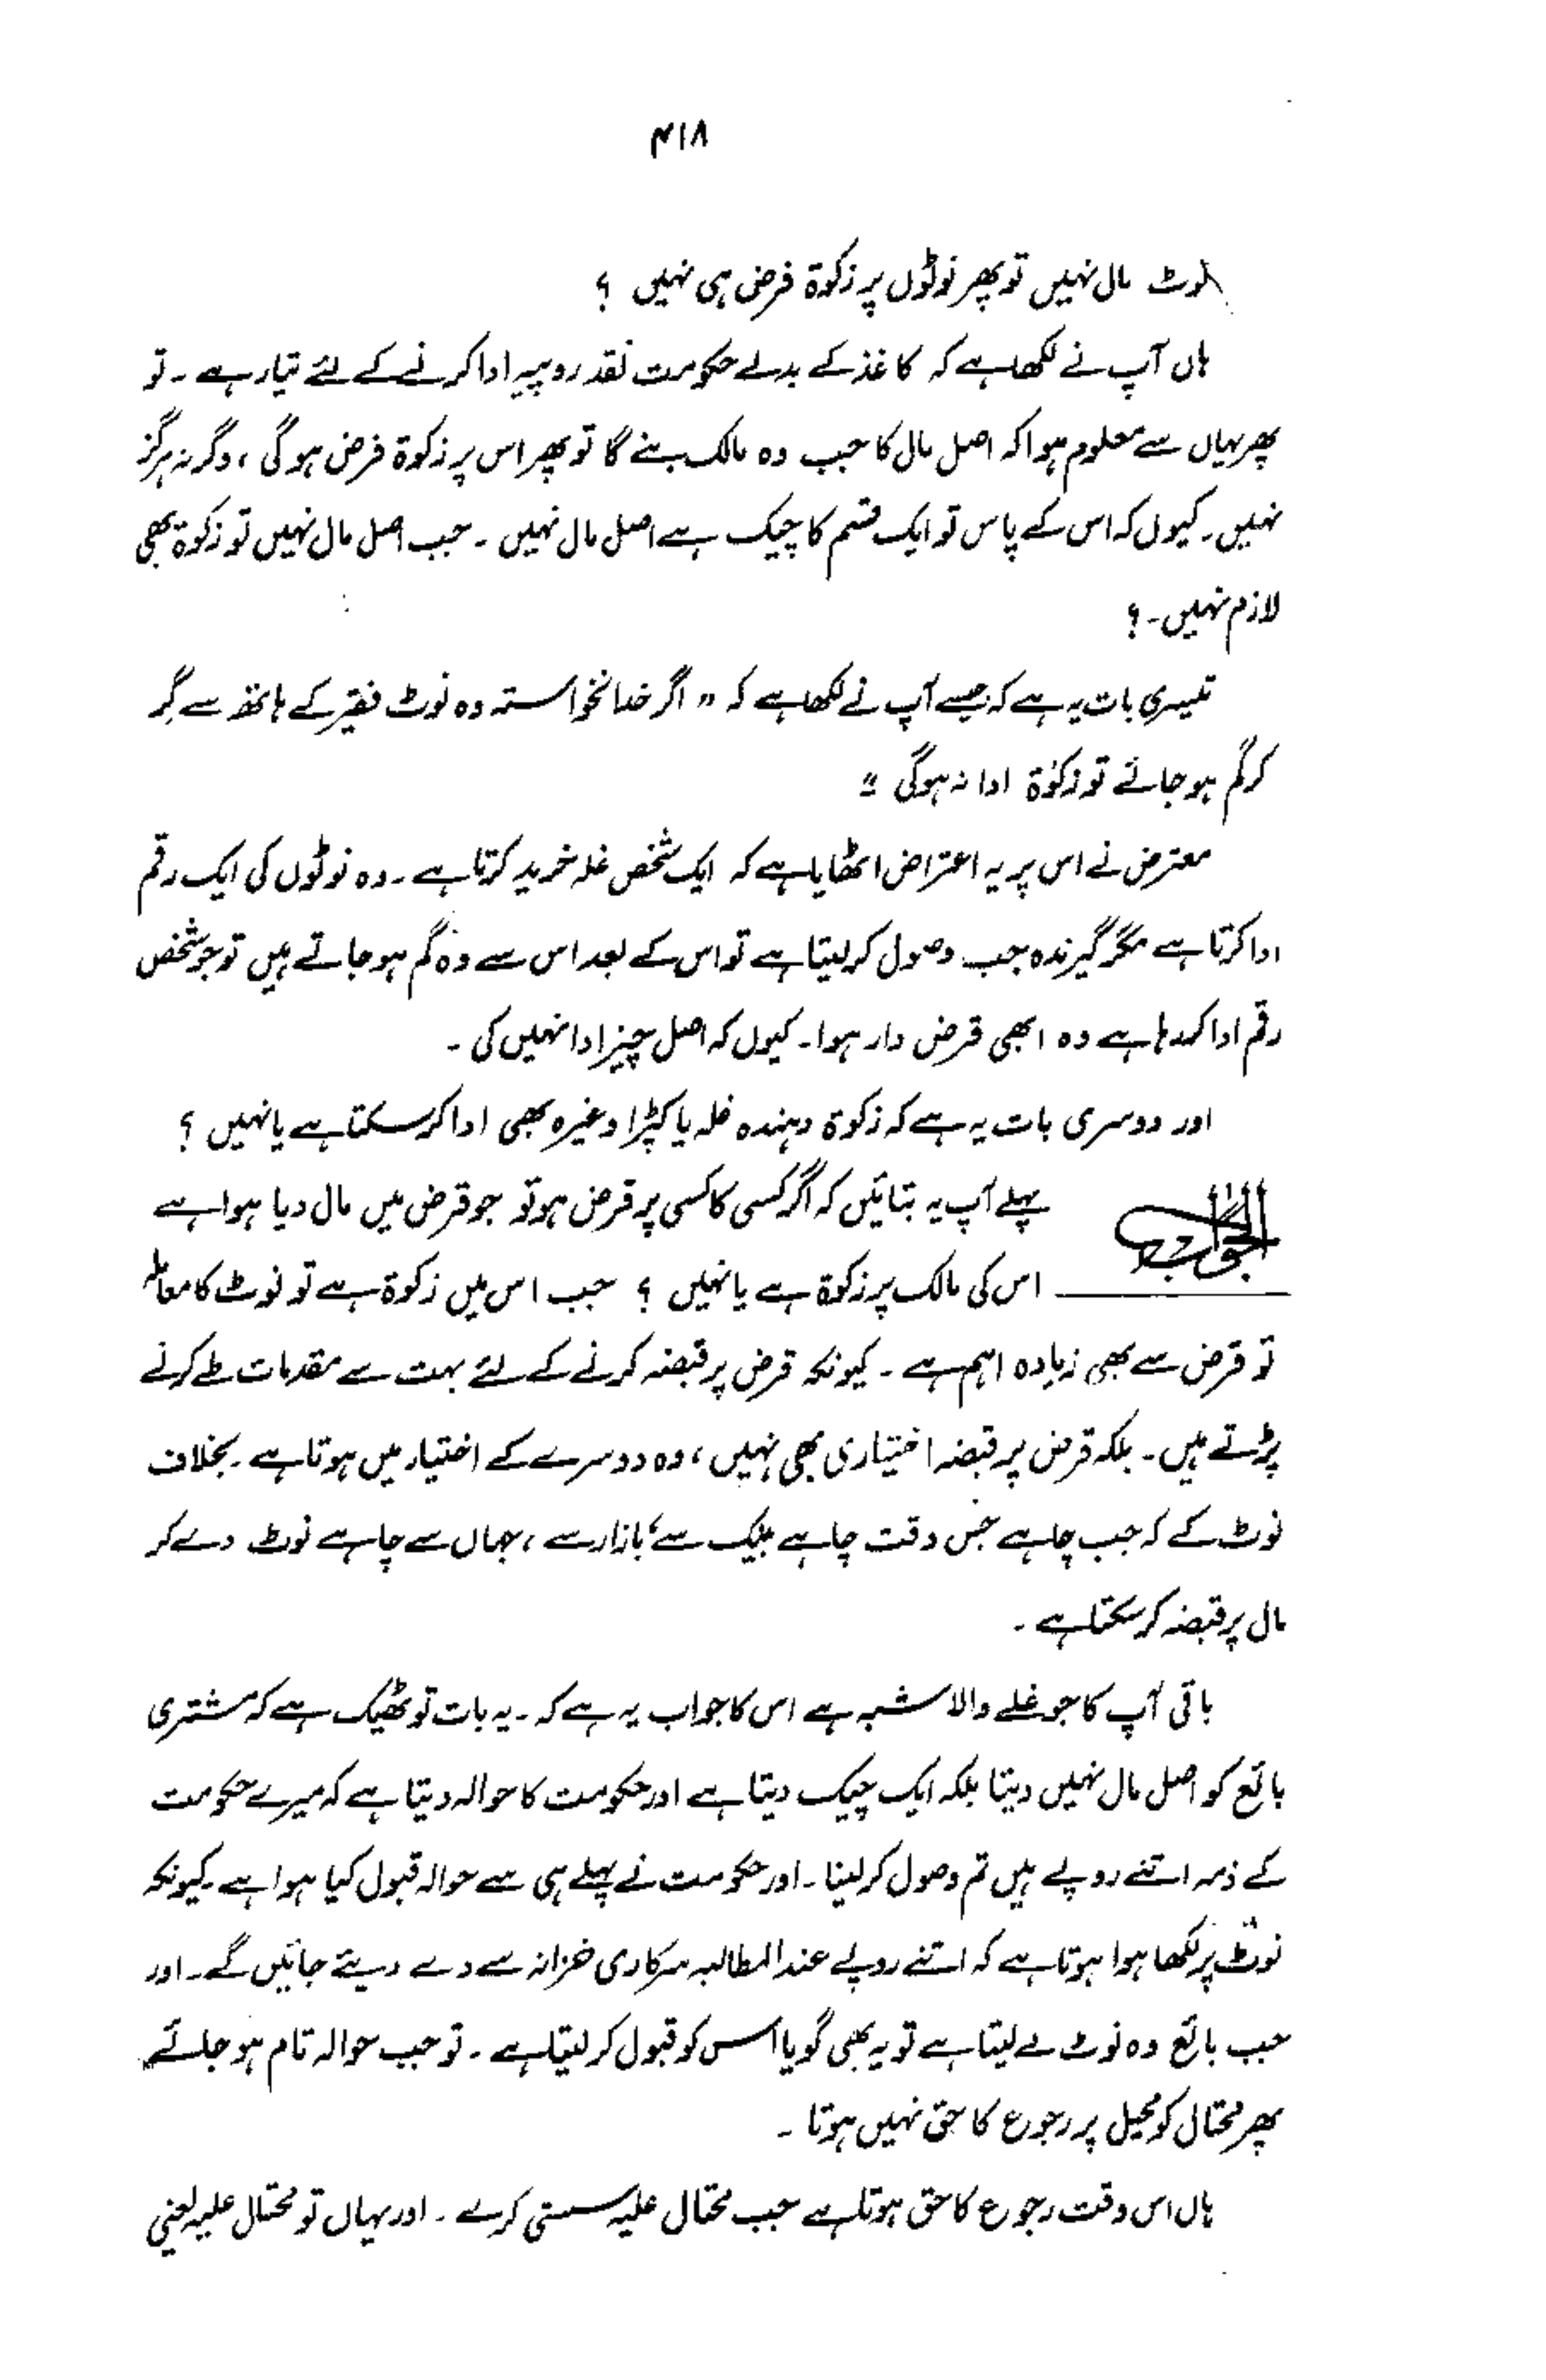 ۴۱۸
نوٹ مال نہیں تو پھر نوٹوں پر زکوٰۃ فرض ہی نہیں ؟
ہاں آپ نے لکھا ہے کہ کاغذ کے بدلے حکومت نقد روپیہ ادا کرنے کے لئے تیار ہے ۔ تو
پھر یہاں سے معلوم ہوا کہ اصل مال کا جب وہ مالک بنے گا تو پھر اس پر زکوٰۃ فرض ہو گی ، وگرنہ ہرگز
نہیں ۔ کیوں کہ اس کے پاس تو ایک قسم کا چیک ہے اصل مال نہیں ۔ جب اصل مال نہیں تو زکوٰۃ بھی
لازم نہیں ۔ ؟
تیسری بات یہ ہے کہ جیسے آپ نے لکھا ہے کہ " اگر خدانخواستہ وہ نوٹ فقیر کے ہاتھ سے گر
کر گم ہو جائے تو زکوٰۃ ادا نہ ہوگی "
معترض نے اس پر یہ اعتراض اٹھایا ہے کہ ایک شخص غلہ خرید کرتا ہے ۔ وہ نوٹوں کی ایک رقم
ادا کرتا ہے مگر گیرندہ جب وصول کر لیتا ہے تو اس کے بعد اس سے وہ گم ہو جاتے ہیں تو جو شخص
رقم ادا کر رہا ہے وہ ابھی قرض دار ہوا ۔ کیوں کہ اصل چیز ادا نہیں کی ۔
اور دوسری بات یہ ہے کہ زکوٰۃ دہندہ غلہ یا کپڑا وغیرہ بھی ادا کر سکتا ہے یا نہیں ؟
الجواب پہلے آپ یہ بتائیں کہ اگر کسی کا کسی پر قرض ہو تو جو قرض میں مال دیا ہوا ہے
اس کی مالک پر زکوٰۃ ہے یا نہیں ؟ جب اس میں زکوٰۃ ہے تو نوٹ کا معاملہ
تو قرض سے بھی زیادہ اہم ہے ۔ کیونکہ قرض پر قبضہ کرنے کے لئے بہت سے مقدمات طے کرنے
پڑتے ہیں ۔ بلکہ قرض پر قبضہ اختیاری بھی نہیں ، وہ دوسرے کے اختیار میں ہوتا ہے ۔ بخلاف
نوٹ کے کہ جب چاہے جس وقت چاہے بینک سے ، بازار سے ، جہاں سے چاہے نوٹ دے کر
مال پر قبضہ کر سکتا ہے ۔
باقی آپ کا جو غلے والا شبہ ہے اس کا جواب یہ ہے کہ ۔ یہ بات تو ٹھیک ہے کہ مشتری
بائع کو اصل مال نہیں دیتا بلکہ ایک چیک دیتا ہے اور حکومت کا حوالہ دیتا ہے کہ میرے حکومت
کے ذمہ اتنے روپے ہیں تم وصول کر لینا ۔ اور حکومت نے پہلے ہی سے حوالہ قبول کیا ہوا ہے ۔ کیونکہ
نوٹ پر لکھا ہوا ہوتا ہے کہ اتنے روپے عندالمطالبہ سرکاری خزانہ سے دے دیئے جائیں گے ۔ اور
جب بائع وہ نوٹ لے لیتا ہے تو یہ بھی گویا اس کو قبول کر لیتا ہے ۔ تو جب حوالہ تام ہو جائے
پھر محتال کو محیل پر رجوع کا حق نہیں ہوتا ۔
ہاں اس وقت رجوع کا حق ہوتا ہے جب محتال علیہ سستی کرے ۔ اور یہاں تو محتال علیہ یعنی